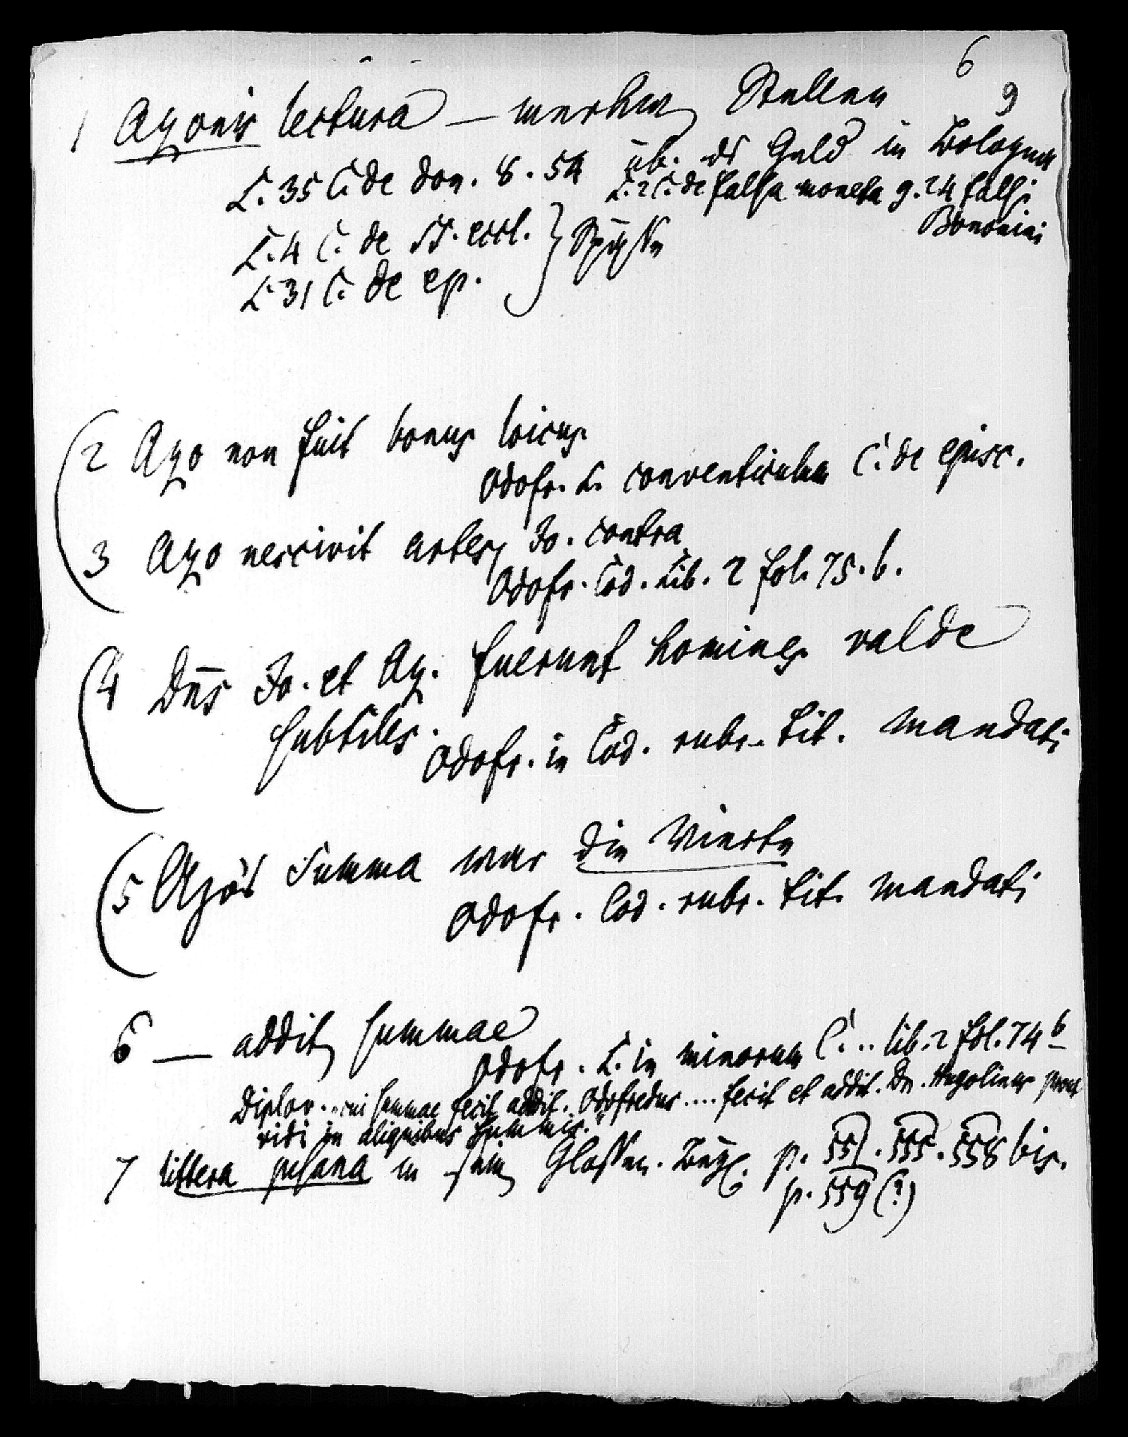 6
9
1 Azonis lectura — merkw. Stellen
üb. ds Geld in Bologna
L. 35 C. de don. 8. 54
L. 2 C. de falsa moneta 9. 24 falsi
Bononini
L. 4 C. de SS. eccl. } Späße
L. 31 C. de ep.
(2 Azo non fuit bonus loicus
Odofr. L. conventicula C. de episc.
3 Azo nescivit artes, Jo. contra
Odofr. Cod. Lib. 2 fol. 75. b.
(4 Dns Jo. et Az. fuerunt homines valde
subtiles.
Odofr. in Cod. rubr. tit. mandati
(5 Azo's Summa war die Vierte
Odofr. Cod. rubr. tit. mandati
6 — addit. summae
Odofr. L. in minorum C. .. lib. 2 fol. 74 b
Diplov. .. cui summae fecit addit. Odofredus .... fecit et addit. Dn. Hugolinus prout
vidi in aliquibus summis.
7 littera pisana in sein Glossen. p. 551. 555. 558 bis.
p. 559 (?)